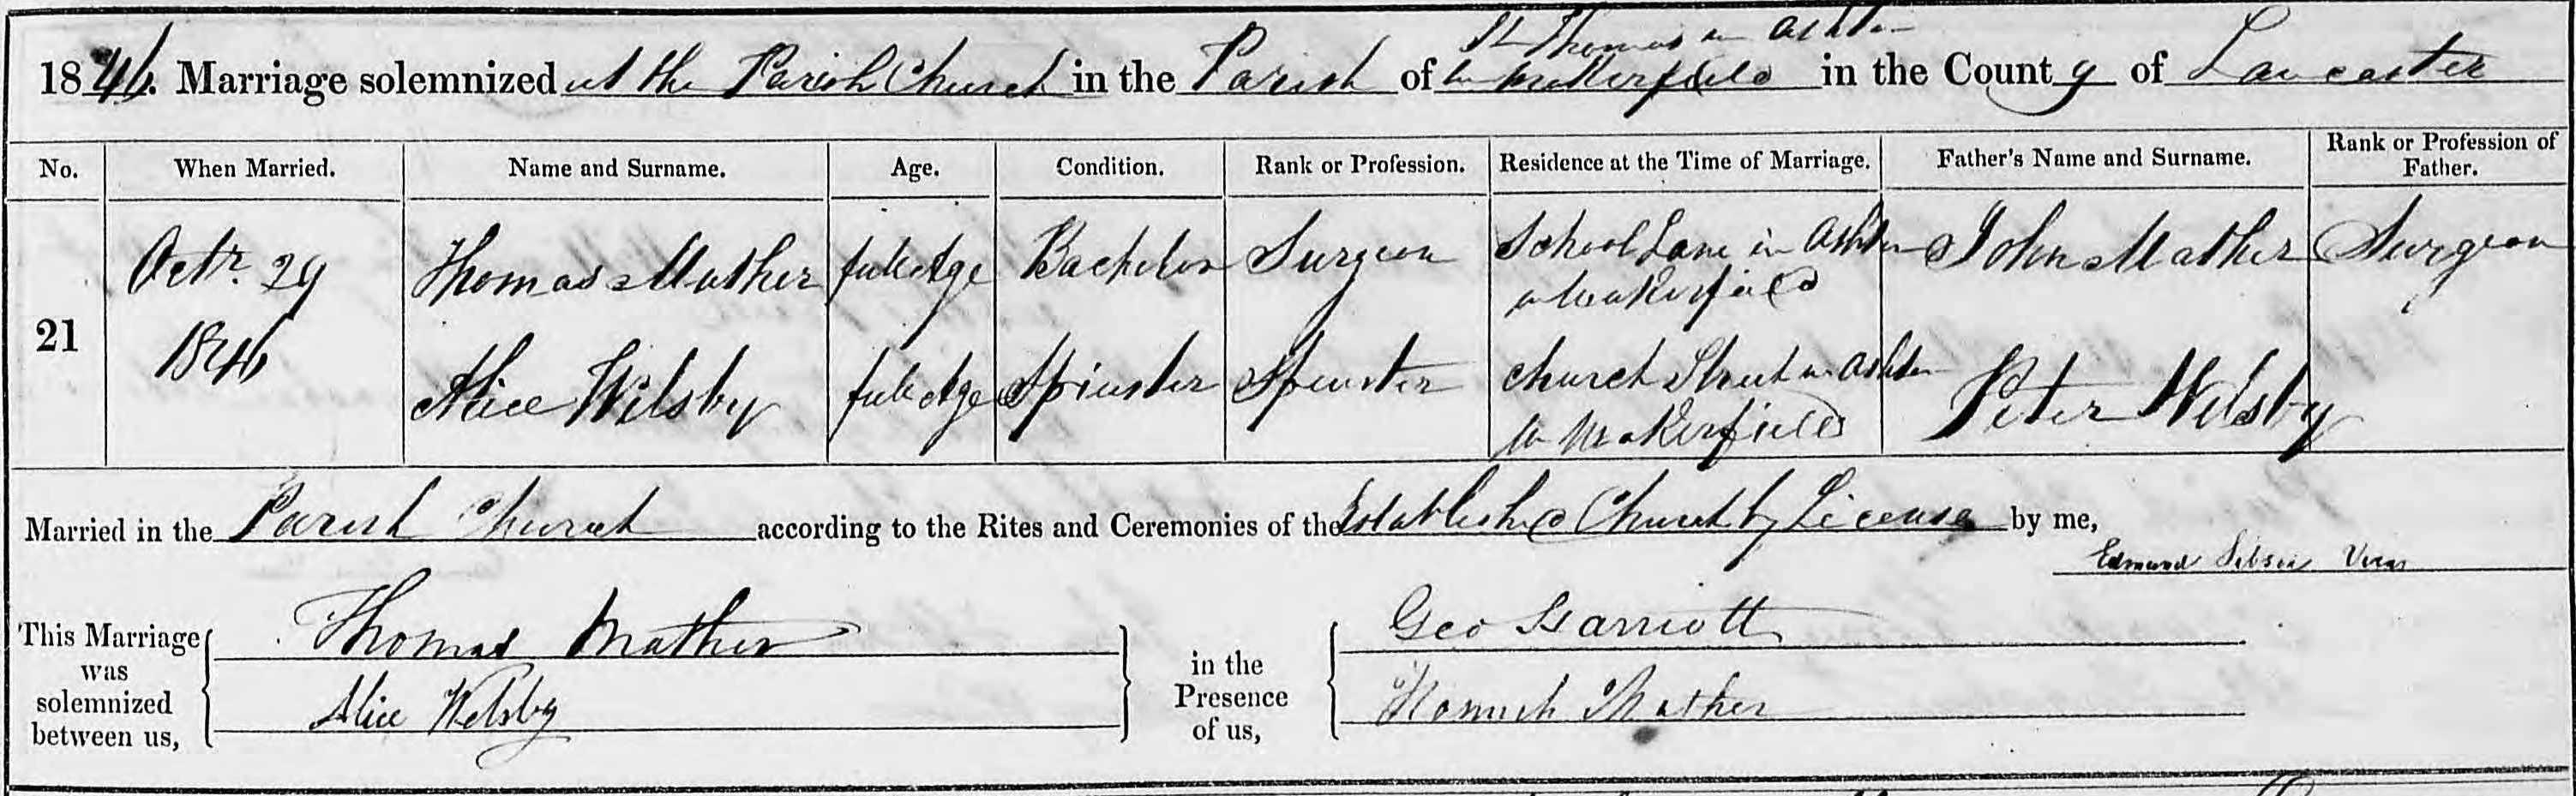 St Thomas in Ashton
1846. Marriage solemnized at the Parish Church in the Parish of in Makerfield in the County of Lancaster
No. When Married. Name and Surname. Age. Condition. Rank or Profession. Residence at the Time of Marriage. Father's Name and Surname. Rank or Profession of Father.
21
Octr. 29 Thomas Mather full Age Bachelor Surgeon School Lane in Ashton John Mather Surgeon
in Makerfield
1846 Alice Welsby full Age Spinster Spinster Church Street in Ashton Peter Welsby
in Makerfield
Married in the Parish Church according to the Rites and Ceremonies of the Established Church by License by me,
Edmund Sibson Vicar
This Marriage was solemnized between us,
Thomas Mather
Alice Welsby
in the Presence of us,
Geo Harriott
Hannah Mather